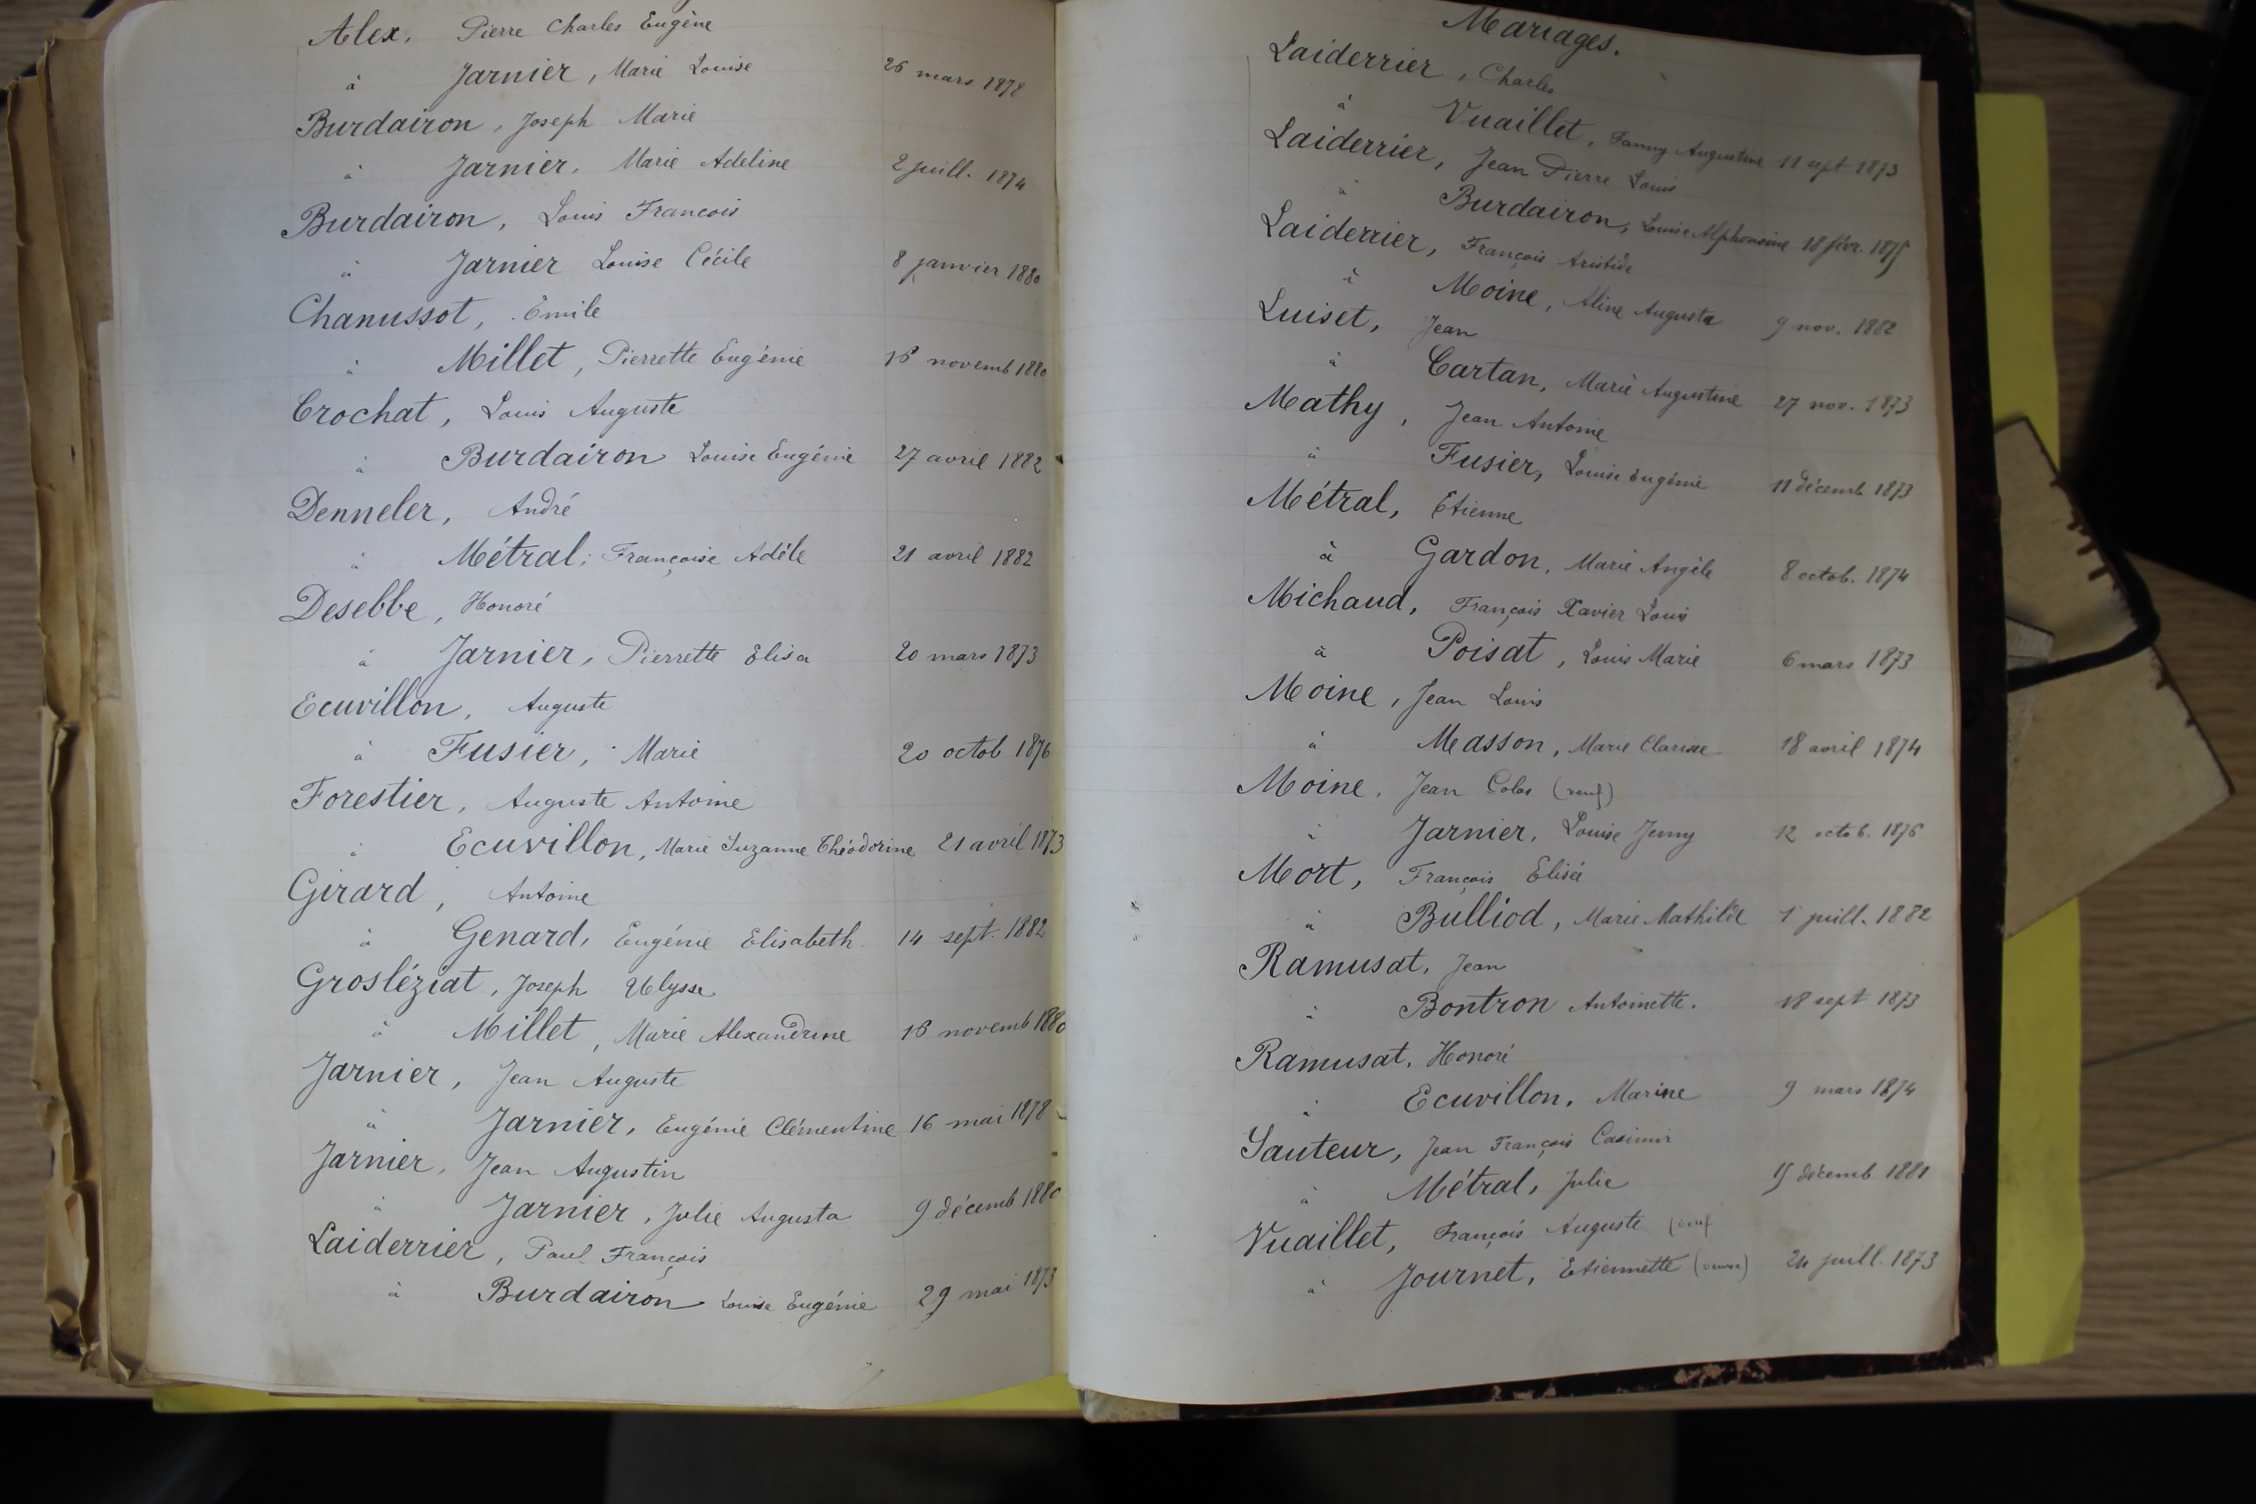 Alex, Pierre Charles Eugène
à Jarnier, Marie Louise 26 mars 1878
Burdairon, Joseph Marie
à Jarnier, Marie Adeline 2 juill. 1874
Burdairon, Louis François
à Jarnier Louise Cécile 8 janvier 1880
Chanussot, Emile
à Millet, Pierrette Eugénie novemb 1880
Crochat, Louis Auguste
à Burdairon Louise Eugénie 27 avril 1882
Denneler, André
à Métral, Françoise Adèle 21 avril 1882
Desebbe, Honoré
à Jarnier, Pierrette Elisa 20 mars 1873
Ecuvillon, Auguste
à Fusier, Marie 20 octob 1876
Forestier, Auguste Antoine
à Ecuvillon, Marie Suzanne Théodorine 21 avril 1873
Girard, Antoine
à Genard, Eugénie Elisabeth 14 sept. 1882
Grosléziat, Joseph Ulysse
à Millet, Marie Alexandrine novemb 1880
Jarnier, Jean Auguste
à Jarnier, Eugénie Clémentine 16 mai 1878
Jarnier, Jean Augustin
à Jarnier, Julie Augusta 9 décemb 1880
Laiderrier, Paul François
à Burdairon Louise Eugénie 29 mai 1873
Mariages.
Laiderrier, Charles
à Vuaillet, Fanny Augustine 11 sept 1873
Laiderrier, Jean Pierre Louis
à Burdairon, Louise Alphonsine 18 févr. 1875
Laiderrier, François Aristide
à Moine, Aline Augusta 9 nov. 1882
Luiset, Jean
à Cartan, Marie Augustine 27 nov. 1873
Mathy, Jean Antoine
à Fusier, Louise Eugénie 11 décemb 1873
Métral, Etienne
à Gardon, Marie Angèle 8 octob. 1874
Michaud, François Xavier Louis
à Poisat, Louis Marie 6 mars 1873
Moine, Jean Louis
à Masson, Marie Clarisse 18 avril 1874
Moine, Jean Colas (veuf)
à Jarnier, Louise Jenny 12 octob. 1876
Mort, François Elisée
à Bulliod, Marie Mathilde 1 juill. 1882
Ramusat, Jean
à Bontron Antoinette. 18 sept 1873
Ramusat, Honoré
à Ecuvillon, Marine 9 mars 1874
Sauteur, Jean François Casimir
à Métral, Julie 15 décemb 1881
Vuaillet, François Auguste (veuf
à Journet, Etiennette (veuve) 24 juill. 1873